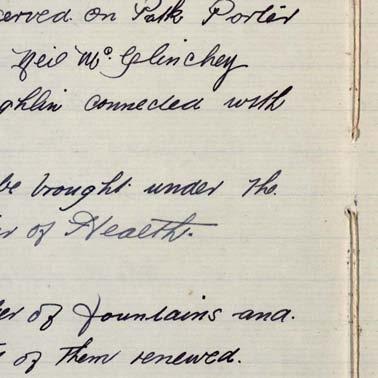 erved on Patk Porter
Neil McGlinchey
ghlin connected with
be brought under the
r of Health.
er of Fountains and
s of them renewed.